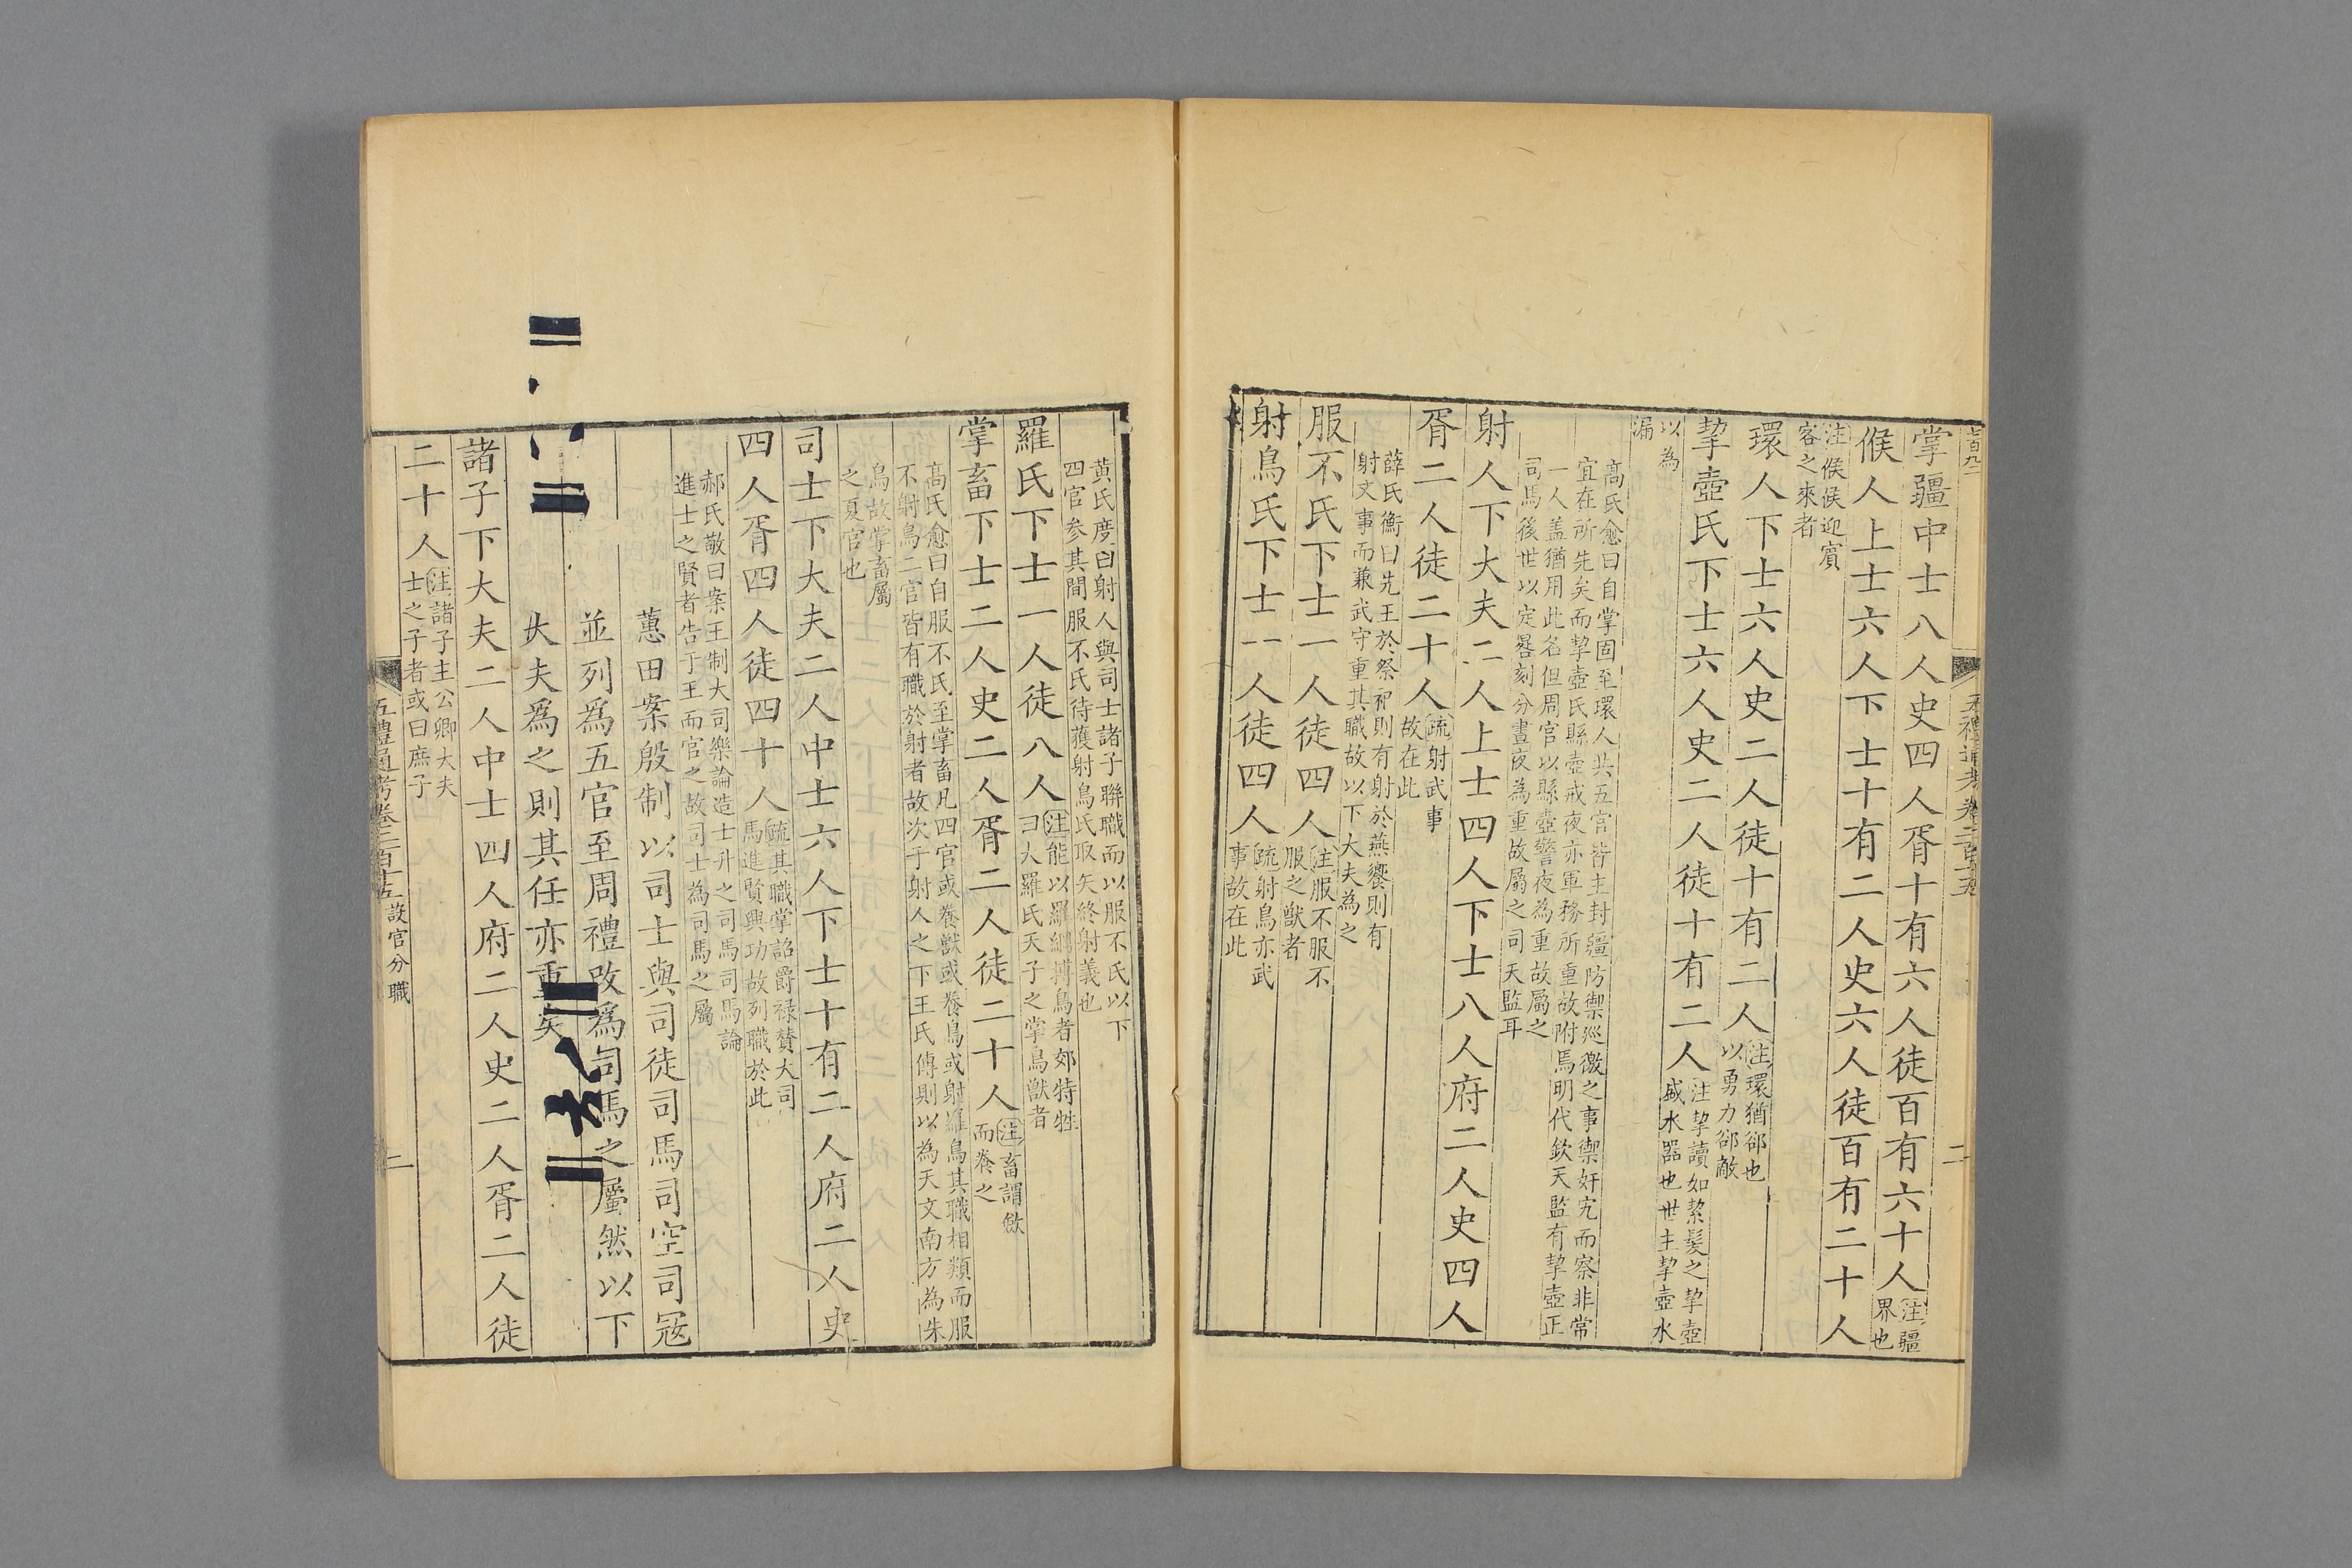 七百九二
五禮通考卷二百十五
二
掌疆中士八人史四人胥十有六人徒百有六十人注疆
界也
候人上士六人下士十有二人史六人徒百有二十人
注候候迎賓
客之來者
環人下士六人史二人徒十有二人注環猶卻也
以勇力卻敵
挈壺氏下士六人史二人徒十有二人注挈讀如絜髮之挈壺
盛水器也世主挈壺水
以為
漏
高氏愈曰自掌固至環人共五官皆主封疆防禦巡徼之事禦奸宄而察非常
宜在所先矣而挈壺氏縣壺戒夜亦軍務所重故附焉明代欽天監有挈壺正
一人盖猶用此名但周官以縣壺警夜為重故屬之
司馬後世以定晷刻分晝夜為重故屬之司天監耳
射人下大夫二人上士四人下士八人府二人史四人
胥二人徒二十人疏射武事
故在此
薛氏衡曰先王於祭祀則有射於燕饗則有
射文事而兼武守重其職故以下大夫為之
服不氏下士一人徒四人注服不服不
服之獸者
射鳥氏下士一人徒四人疏射鳥亦武
事故在此
黃氏度曰射人與司士諸子聯職而以服不氏以下
四官参其間服不氏待獲射鳥氏取矢終射義也
羅氏下士一人徒八人注能以羅網搏鳥者郊特牲
曰大羅氏天子之掌鳥獸者
掌畜下士二人史二人胥二人徒二十人注畜謂斂
而養之
高氏愈曰自服不氏至掌畜凡四官或養獸或養鳥或射羅鳥其職相類而服
不射鳥二官皆有職於射者故次于射人之下王氏傳則以為天文南方為朱
鳥故掌畜屬
之夏官也
司士下大夫二人中士六人下士十有二人府二人史
四人胥四人徒四十人疏其職掌詔爵祿賛大司
馬進賢興功故列職於此
郝氏敬曰案王制大司樂論造士升之司馬司馬論
進士之賢者告于王而官之故司士為司馬之屬
蕙田案殷制以司士與司徒司馬司空司寇
並列爲五官至周禮改爲司馬之屬然以下
大夫爲之則其任亦重矣
諸子下大夫二人中士四人府二人史二人胥二人徒
二十人注諸子主公卿大夫
士之子者或曰庶子
五禮通考卷二百十五 設官分職
二